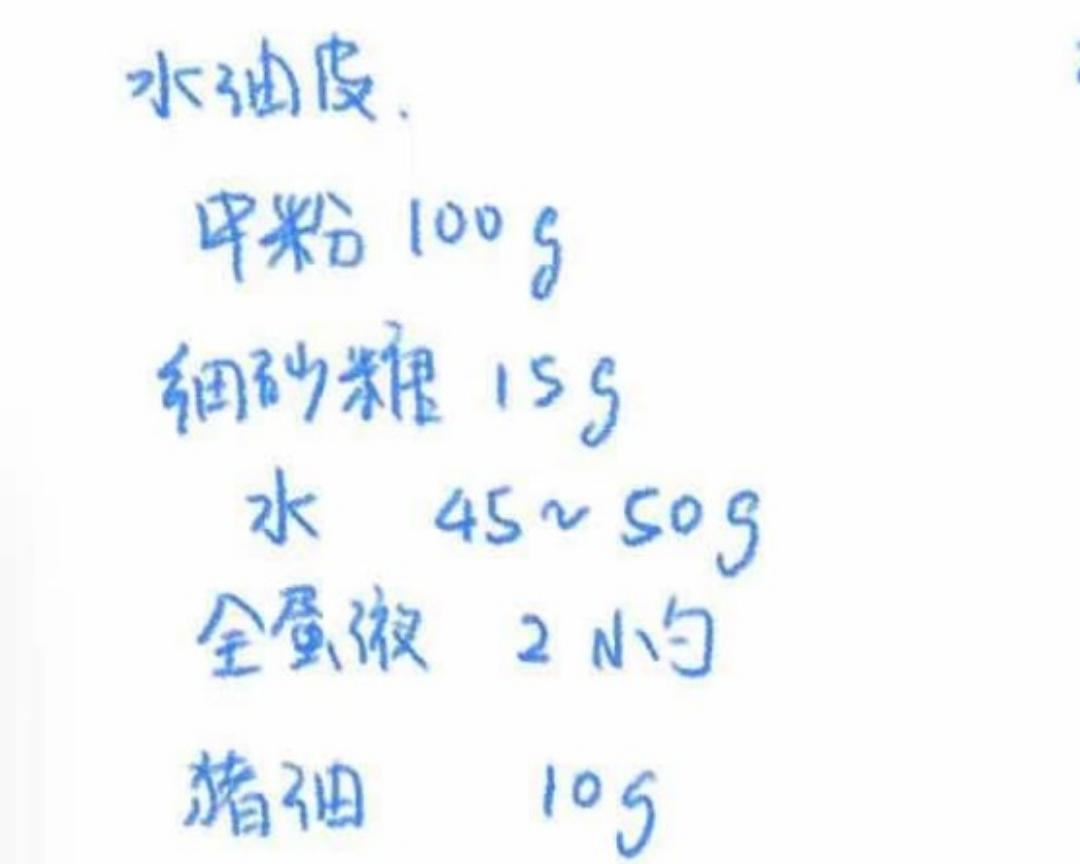 水油皮.
中粉 100g
细砂糖 15g
水 45~50g
全蛋液 2小勺
猪油 10g